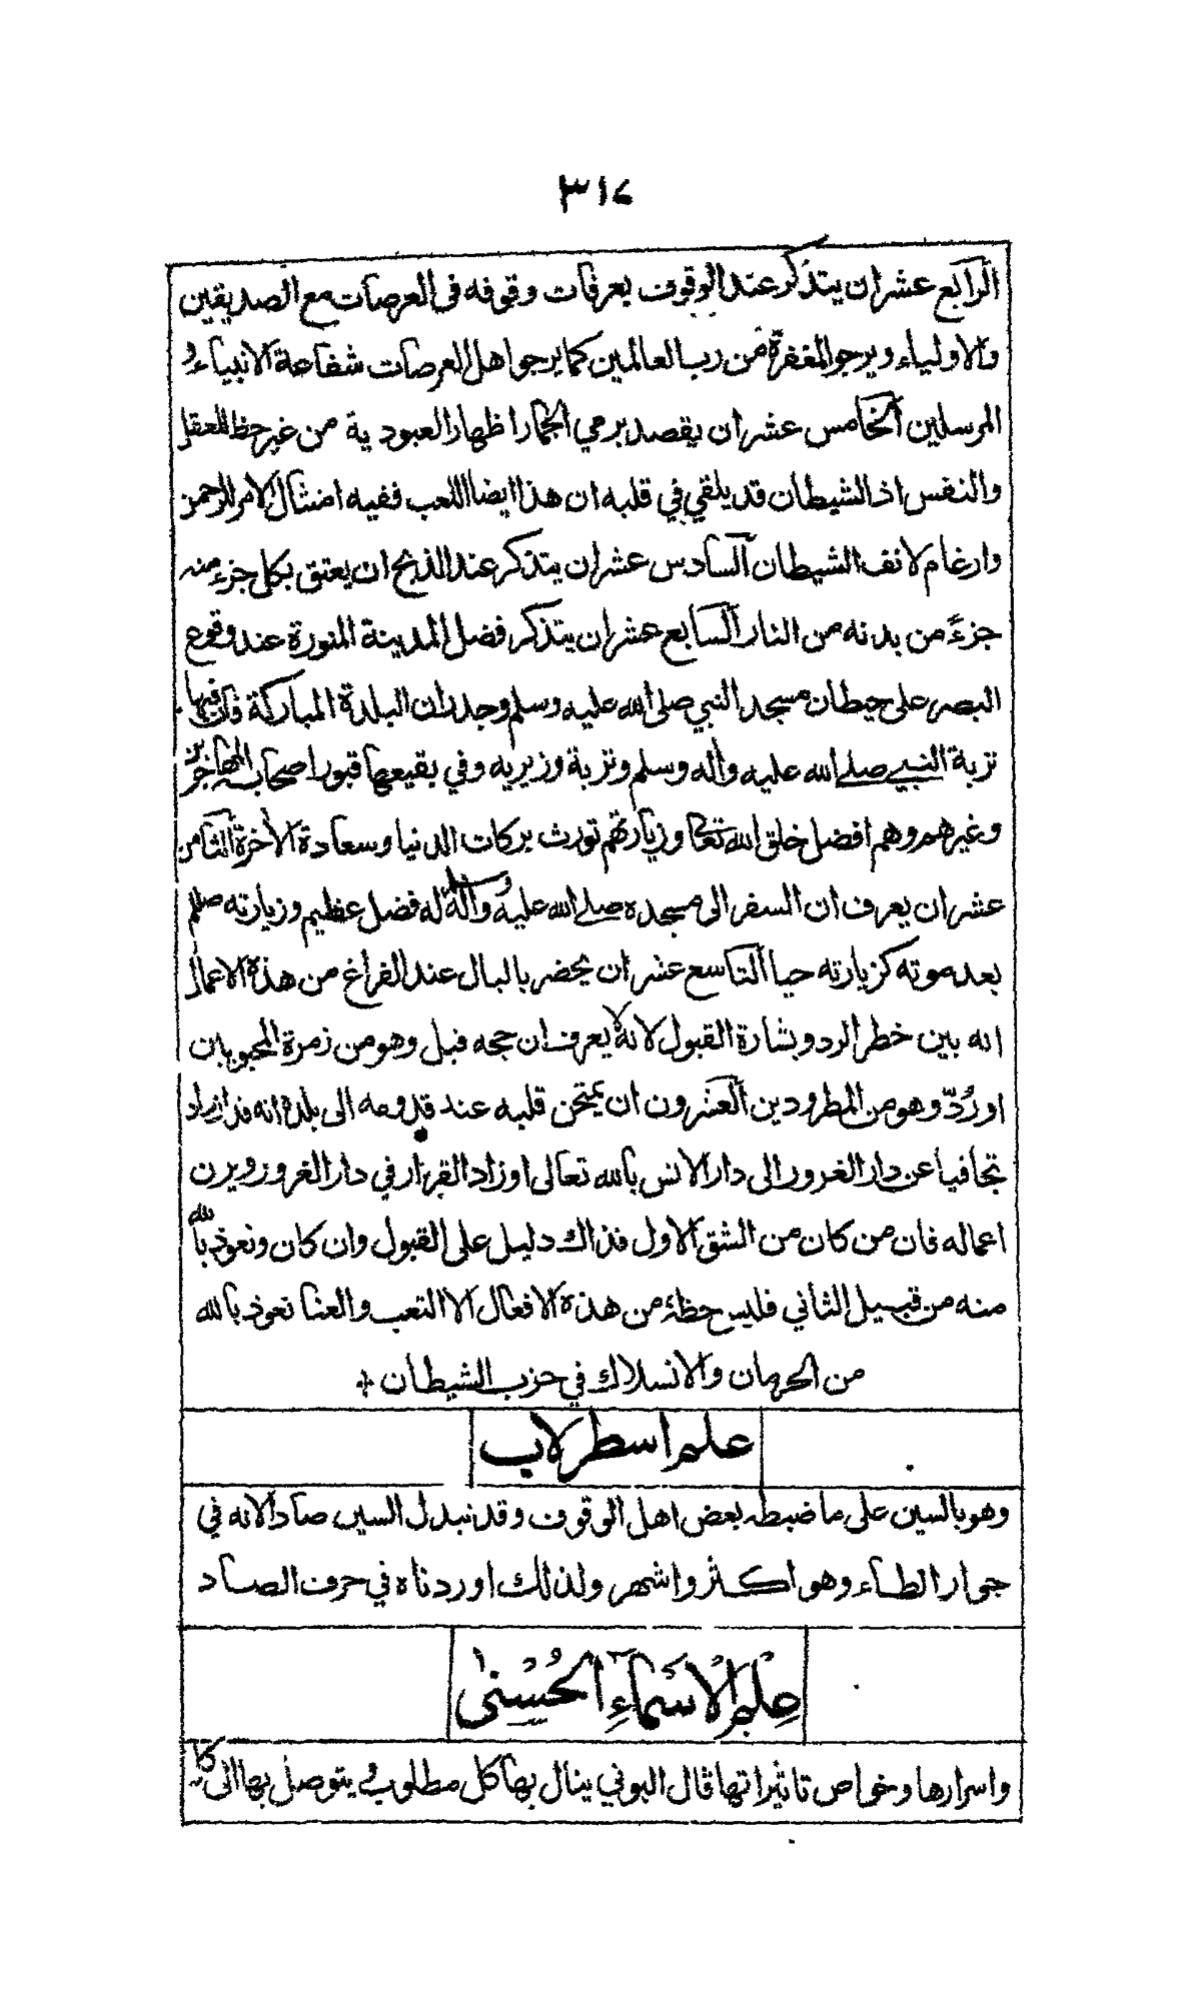 ٣١٤
الرابع عشر ان يتذكر عند الوقوف بعرفات وقوفه فى العرصات مع الصديقين
والاولياء ويرجو المغفرة من رب العالمين كما يرجو اهل العرصات شفاعة الانبياء و
المرسلين الخامس عشر ان يقصد برمي الجمار اظهار العبودية من غير حظ للعقل
والنفس اذ الشيطان قد يلقي في قلبه ان هذا ايضا اللعب ففيه امتثال الامر للرحمن
وارغام لانف الشيطان السادس عشر ان يتذكر عند الذبح ان يعتق بكل جزء منه
جزءً من بدنه من النار السابع عشر ان يتذكر فضل المدينة المنورة عند وقوع
البصر على حيطان مسجد النبي صلى الله عليه وسلم وجدران البلدة المباركة فان فيها
تربة النبي صلى الله عليه واله وسلم وتربة وزيريه وفي بقيعها قبور اصحابه المهاجرين
وغيرهم وهم افضل خلق الله تعالى وزيارتهم تورث بركات الدنيا وسعادة الأخرة الثامن
عشر ان يعرف ان السفر الى مسجده صلى الله عليه واله وسلم له فضل عظيم وزيارته صللم
بعد موته كزيارته حيا التاسع عشر ان يحضر بالبال عند الفراغ من هذه الاعمال
انه بين خطر الرد وبشارة القبول لانه لا يعرف ان حجه قبل وهو من زمرة المحبوبان
او رُدّ وهو من المطرودين العشرون ان يمتحن قلبه عند قدومه الى بلده انه قد ازداد
تجافيا عن دار الغرور الى دار الانس بالله تعالى او زاد القرار في دار الغرور ويزن
اعماله فان من كان من الشق الاول فذاك دليل على القبول وان كان ونعوذ بالله
منه من قبيل الثاني فليس حظه من هذه الافعال الا التعب والعنا نعوذ بالله
من الحرمان والانسلاك في حزب الشيطان
علم اسطرلاب
وهو بالسين على ما ضبطه بعض اهل الوقوف وقد تبدل السين صادا لانه في
جوار الطاء وهو اكثر واشهر ولذلك اوردناه في حرف الصاد
عِلْم الْاَسْمَآءِ الحُسْنٰى
واسرارها وخواص تاثيراتها قال البوني ينال بها كل مطلوب و يتوصل بها الى كل